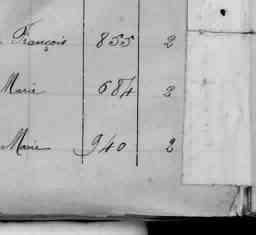 François 855 2
Marie 684 2
Marie 940 2